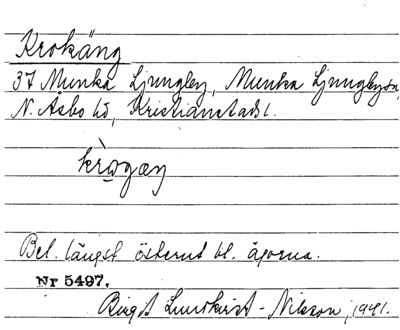 Krokäng
37 Munka Ljungby, Munka Ljungby sn,
N. Åsbo hd, Kristianstads l.
krògæŋ
Bel. längst österut bl. ägorna.
Nr 5497.
Birgit Lundkvist-Nilsson, 1941.